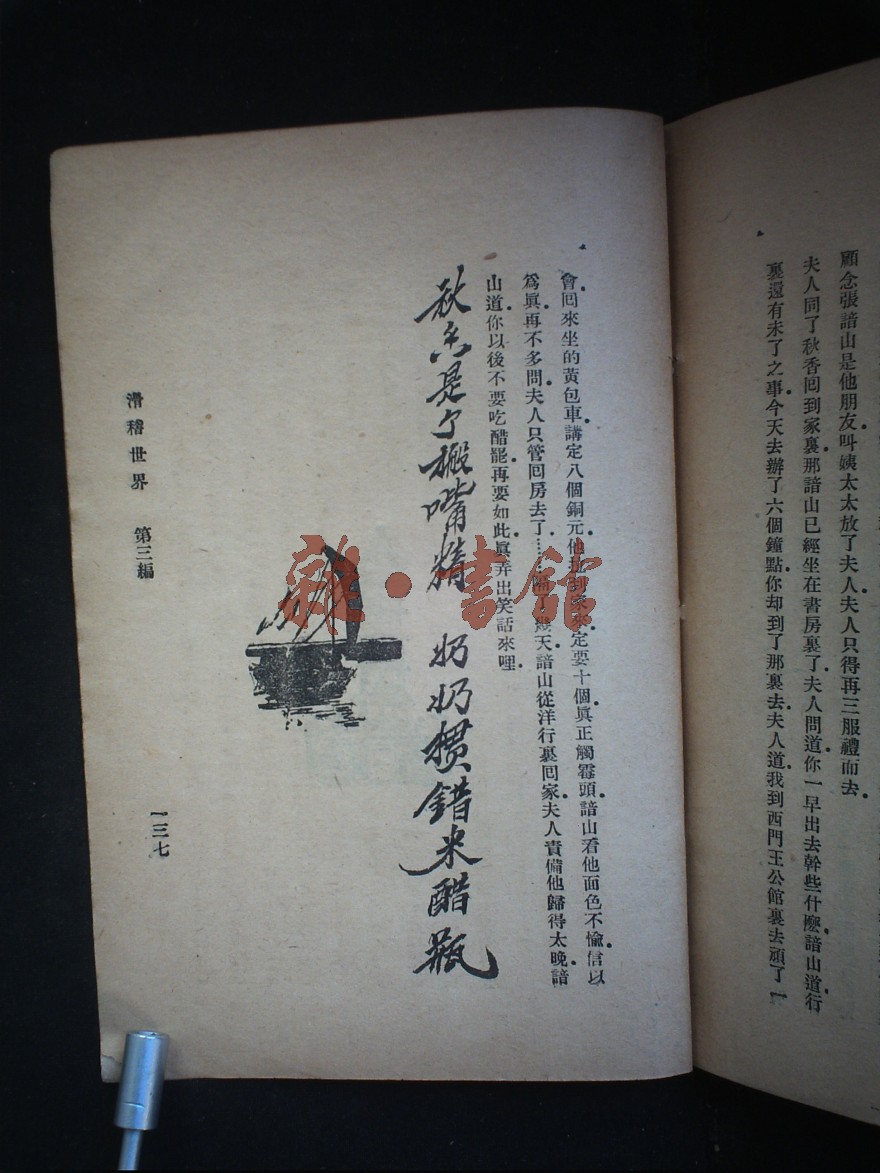 顧念張諳山是他朋友叫姨太太放了夫人夫人只得再三服禮而去
夫人同了秋香囘到家裏那諳山已經坐在書房裏了夫人問道你一早出去幹些什麽諳山道行
裏還有未了之事今天去辦了六個鐘點你却到了那裏去夫人道我到西門王公館裏去頑了一
會囘來坐的黃包車講定八個銅元他拉到家來定要十個眞正觸霉頭諳山看他面色不愉信以
爲眞再不多問夫人只管回房去了……隔了幾天諳山從洋行裏囘家夫人責備他歸得太晚諳
山道你以後不要吃醋罷再要如此眞弄出笑話來哩
秋香是个搬嘴精 奶奶摜錯米醋瓶
滑稽世界 第三編
一三七
雜·書館